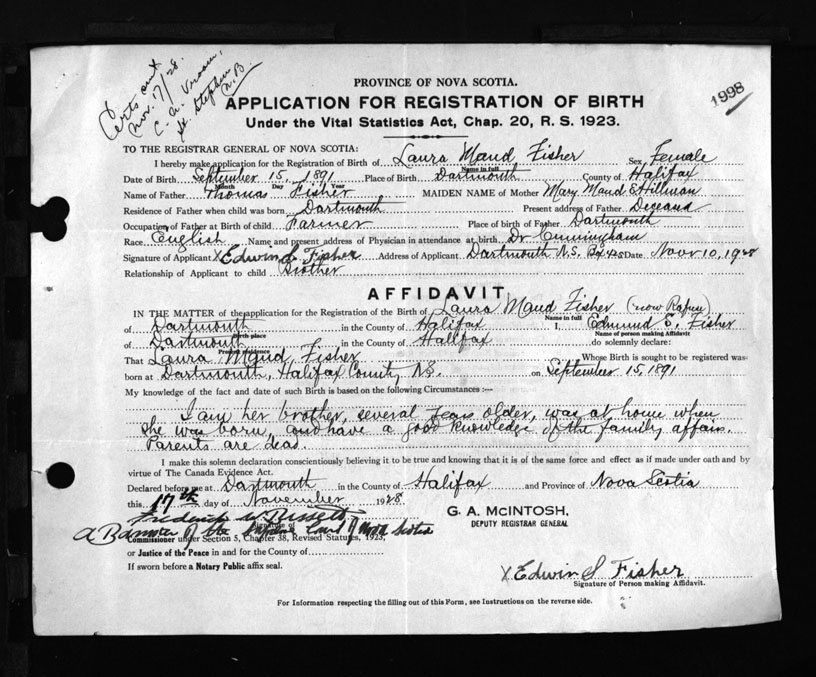 Certs sent
Nov. 17/28.
C. A. Vroom,
St. Stephen
N.B.
1998
PROVINCE OF NOVA SCOTIA.
APPLICATION FOR REGISTRATION OF BIRTH
Under the Vital Statistics Act, Chap. 20, R. S. 1923.
TO THE REGISTRAR GENERAL OF NOVA SCOTIA:
I hereby make application for the Registration of Birth of Laura Maud Fisher Sex Female
Name in full
Date of Birth September 15, 1891 Place of Birth Dartmouth County of Halifax
Month Day Year
Name of Father Thomas Fisher MAIDEN NAME of Mother Mary Maud Hillman
Residence of Father when child was born Dartmouth Present address of Father Deceased
Occupation of Father at Birth of child Farmer Place of birth of Father Dartmouth
Race English Name and present address of Physician in attendance at birth Dr Cunningham
Signature of Applicant X Edwin S. Fisher Address of Applicant Dartmouth N.S. Date Nov 10, 1928
Relationship of Applicant to child Brother
AFFIDAVIT
IN THE MATTER of the application for the Registration of the Birth of Laura Maud Fisher (now
Name in full
of Dartmouth in the County of Halifax I, Edmund S. Fisher
Birth place Name of person making Affidavit
of Dartmouth in the County of Halifax do solemnly declare:
Present residence
That Laura Maud Fisher Whose Birth is sought to be registered was
born at Dartmouth, Halifax County, N.S. on September 15, 1891
My knowledge of the fact and date of such Birth is based on the following Circumstances :—
I am her brother, several years older, was at home when
she was born, and have a good knowledge of the family affairs.
Parents are dead.
I make this solemn declaration conscientiously believing it to be true and knowing that it is of the same force and effect as if made under oath and by
virtue of The Canada Evidence Act.
Declared before me at Dartmouth in the County of Halifax and Province of Nova Scotia
this 17th day of November 1928
G. A. McINTOSH,
DEPUTY REGISTRAR GENERAL
Frederick W. Bissett
Signature of
A Barrister of the Supreme Court of Nova Scotia
Commissioner under Section 5, Chapter 38, Revised Statutes, 1923,
or Justice of the Peace in and for the County of
If sworn before a Notary Public affix seal.
X Edwin S Fisher
Signature of Person making Affidavit.
For Information respecting the filling out of this Form, see Instructions on the reverse side.